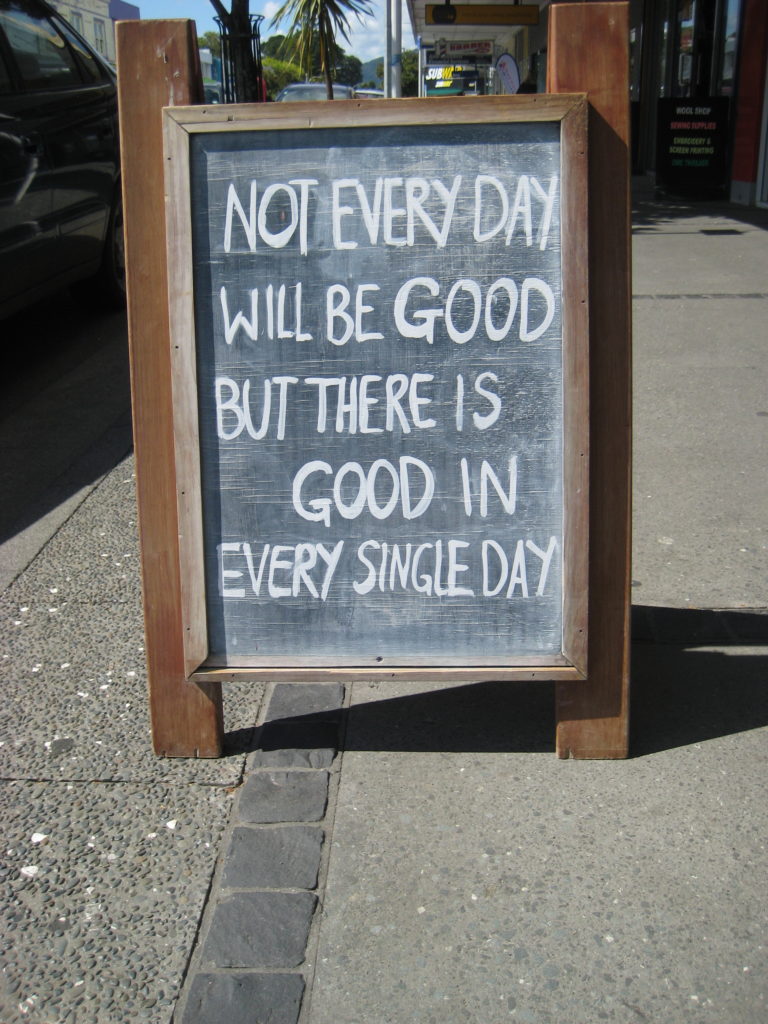 NOT EVERY DAY
WILL BE GOOD
BUT THERE IS
GOOD IN
EVERY SINGLE DAY
SUBW
WOOL SHOP
SEWING SUPPLIES
EMBROIDERY &
SCREEN PRINTING